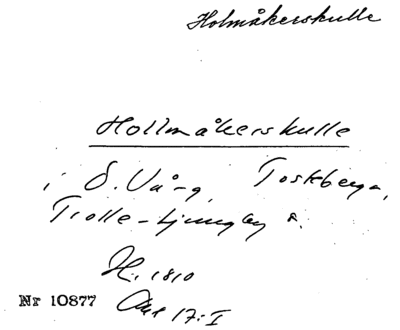 Holmåkerskulle
Hollmåkerskulle
i S. Vång, Toskberga,
Trolle-Ljungby s.
H. 1810
Nr 10877 Akt 17: I